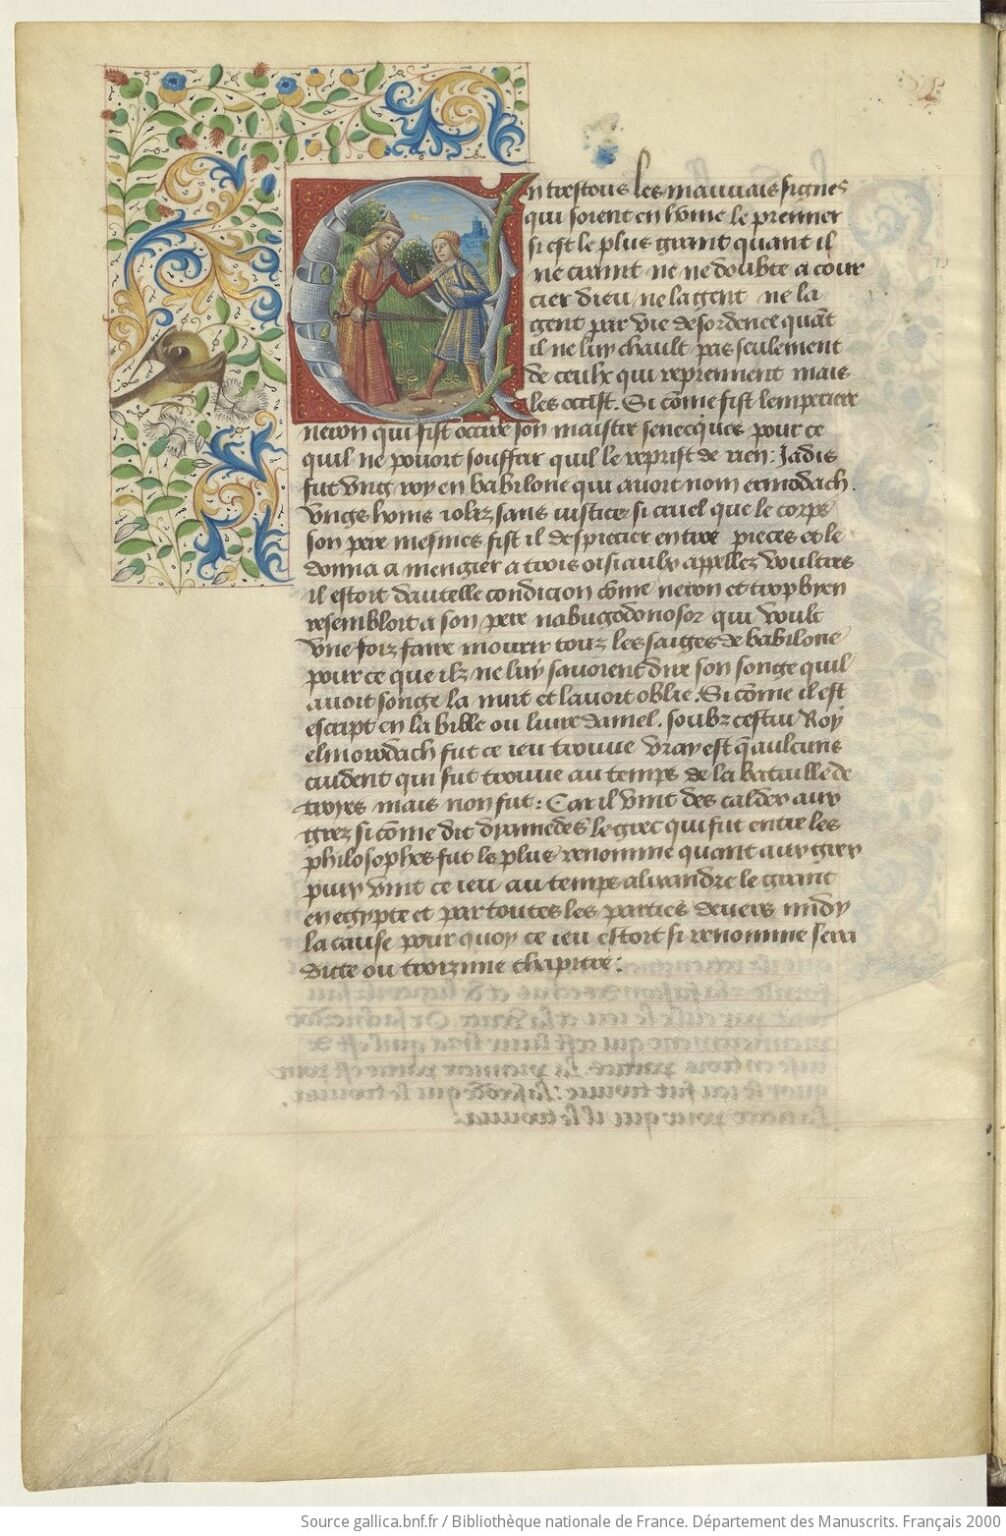 En trestous les mauuais signes
qui soient en home le premier
si est le plus grant quant il
ne craint ne ne doubte a cour
cier dieu ne la gent ne la
gent par vie desordence quãt
il ne luy chault pas seulement
de ceulx qui reprennent mais
les occist. Si cõme fist lempereur
neron qui fist occire son maistre senecques pour ce
quil ne pouoit souffrir quil le reprist de rien: Jadis
fut vng roy en babilone qui auoit nom ermodach.
vngs homs iolez sans iustice si cruel que le corps
son pere mesmes fist il despiecier en trois pieces et le
donna a mengier a trois oisiaulx appellez voultres
il estoit dautelle condicion cõme neron et trop bien
resembloit a son pere nabugodonosor qui voult
vne foiz faire mourir touz les saiges de babilone
pour ce que ilz ne luy sauoient dire son songe quil
auoit songe la nuit et lauoit oblie. Si cõme il est
escript en la bible ou liure daniel. soubz cestui Roy
elmorodach fut ce ieu trouue vray est q̃ aulcuns
cuident qui fut trouue au temps de la bataille de
troyes mais non fut: Car il vint des caldex aux
grez si cõme dit diumedes le grec qui fut entre les
philosophes fut le plus renomme quant aux grex
puix vint ce ieu au temps alixandre le grant
en egypte et par toutes les parties deuers midy
la cause pour quoy ce ieu estoit si renomme sera
dicte ou troizime chapitre:
Source gallica.bnf.fr / Bibliothèque nationale de France. Département des Manuscrits. Français 2000